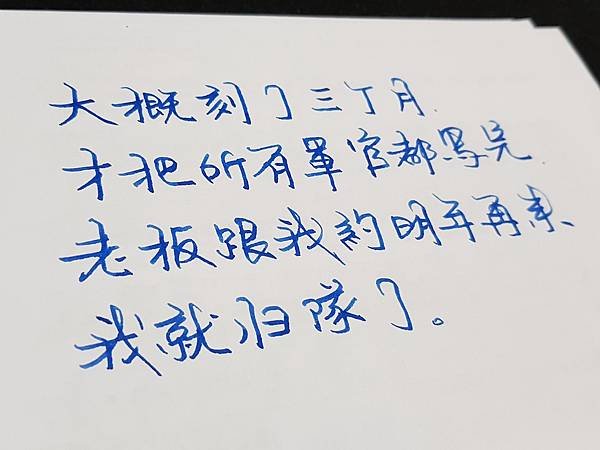 大概刻了三个月.
才把所有軍官都寫完.
老板跟我約明年再来
我就归隊了。